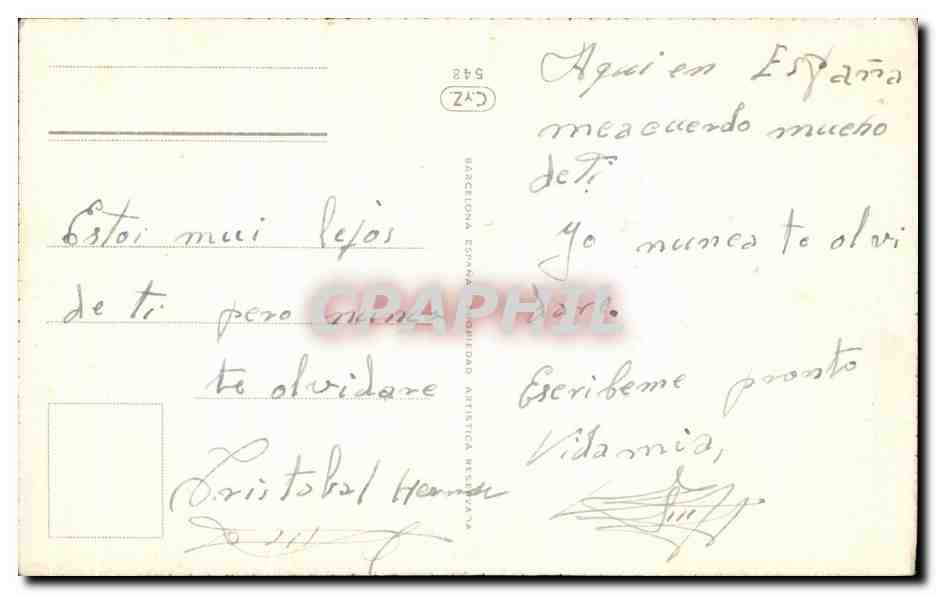 548
CyZ.
BARCELONA ESPAÑA PROPIEDAD ARTISTICA RESERVADA
CPAPHIL
Estoi mui lejos
de ti pero nunca
te olvidare
Cristobal
Aqui en España
meacuerdo mucho
de Ti
yo nunca te olvi
dare.
Escribeme pronto
Vida mia,